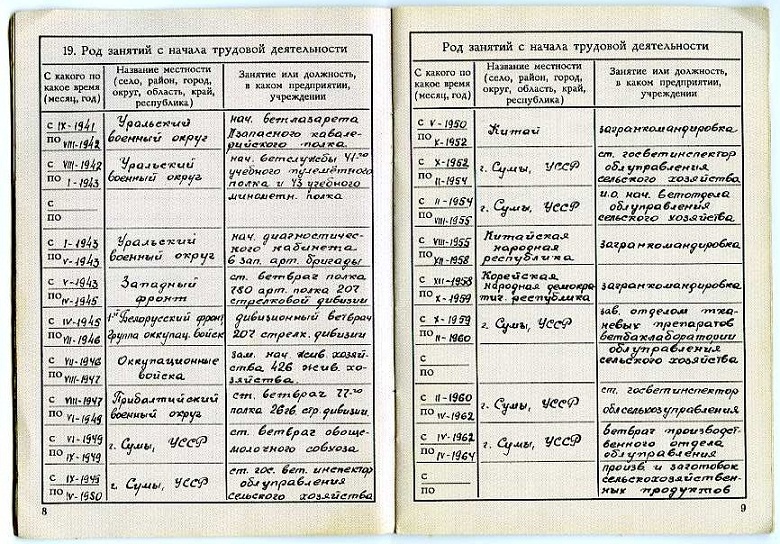 19. Род занятий с начала трудовой деятельности
С какого по какое время (месяц, год)
Название местности (село, район, город, округ, область, край, республика)
Занятие или должность, в каком предприятии, учреждении
с IX-1941
по VIII-1942
Уральский
военный округ
нач. ветлазарета
запасного кавале-
рийского полка
с VIII-1942
по I-1943
Уральский
военный округ
нач. ветслужбы 41го
учебного пулемётного
полка и 43 учебного
минометн. полка
с
по
с I-1943
по V-1943
Уральский
военный округ
нач. диагностичес-
кого кабинета
6 зап. арт. бригады
с V-1943
по IV-1945
Западный
фронт
ст. ветврач полка
780 арт. полка 207
стрелковой дивизии
с IV-1945
по VII-1946
1й Белорусский фронт,
группа оккупац. войск
дивизионный ветврач
207 стрелк. дивизии
с VII-1946
по VIII-1947
Оккупационные
войска
зам. нач. жив. хозяй-
ства 426 жив. хо-
зяйства.
с VIII-1947
по VI-1949
Прибалтийский
военный округ
ст. ветврач 77го
полка 26гв. стр. дивизии.
с VI-1949
по IX-1949
г. Сумы, УССР
ст. ветврач овоще-
молочного совхоза
с IX-1949
по IV-1950
г. Сумы, УССР
ст. гос. вет. инспектор
облуправления
сельского хозяйства
8
Род занятий с начала трудовой деятельности
С какого по какое время (месяц, год)
Название местности (село, район, город, округ, область, край, республика)
Занятие или должность, в каком предприятии, учреждении
с V-1950
по X-1952
Китай
загранкомандировка
с X-1952
по II-1954
г. Сумы, УССР
ст. госветинспектор
облуправления
сельского хозяйства
с II-1954
по VIII-1955
г. Сумы, УССР
и.о. нач. ветотдела
облуправления
сельского хозяйства
с VIII-1955
по XII-1958
Китайская
народная
республика
загранкомандировка
с XII-1958
по X-1959
Корейская
народная демокра
тич. республика
загранкомандировка
с X-1959
по II-1960
г. Сумы, УССР
зав. отделом тка-
невых препаратов
ветбаклаборатории
с
по
облуправления
сельского хозяйства
с II-1960
по IV-1962
г. Сумы, УССР
ст. госветинспектор
облсельхозуправления
с IV-1962
по IV-1964
г. Сумы, УССР
ветврач производст-
венного отдела
облуправления
с
по
произв. и заготовок
сельскохозяйствен-
ных продуктов
9